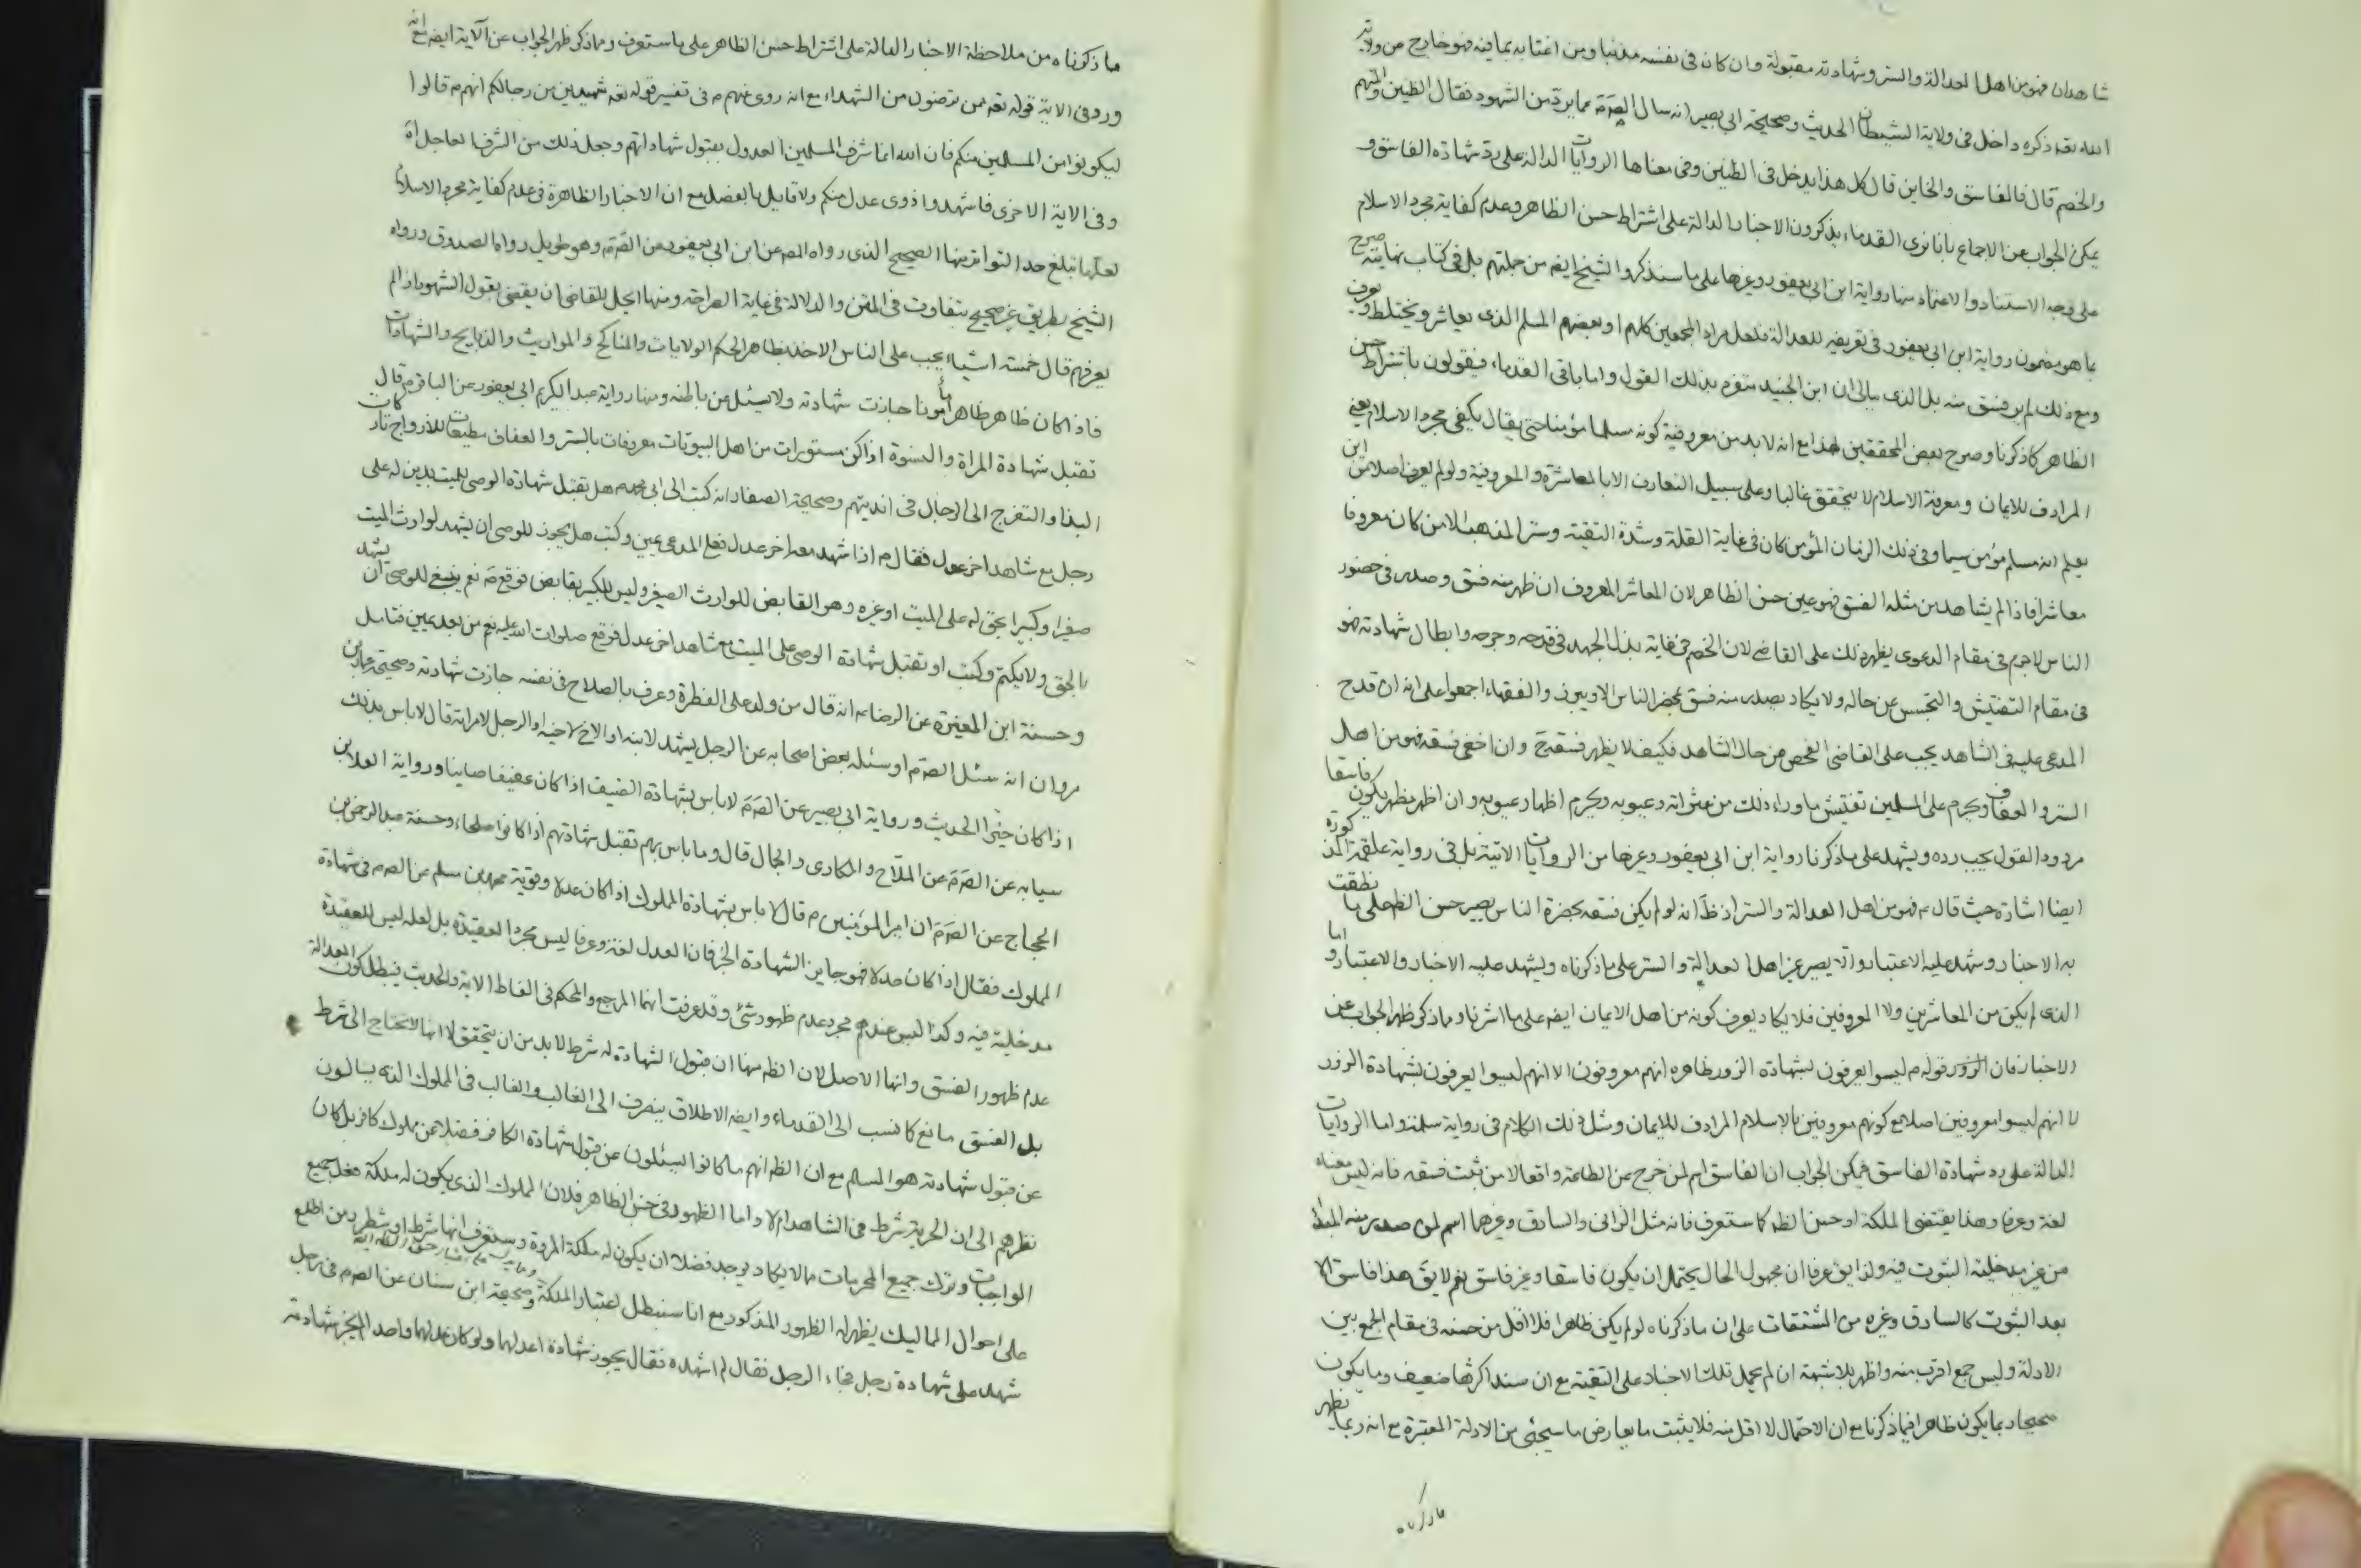 شاهدان فهو من اهل العدالة والستر وشهادته مقبولة وان كان فى نفسه مذنبا ومن اغتابه بما فيه فهو خارج من ولاية
الله تعه ذكره داخل فى ولاية الشيطان الحديث وصحيحة ابى بصير انه سال الصم عما يرد من الشهود فقال الظنين والمتهم
والخصم قال فالفاسق والخاين قال كل هذا يدخل فى الظنين وفى معناها الروايات الدالة على رد شهادة الفاسق و
يمكن الجواب عن الاجماع بانا نرى القدماء يذكرون الاخبار الدالة على اشتراط حسن الظاهر وعدم كفاية مجرد الاسلام
على وجه الاستناد والاعتماد منها رواية ابن ابى يعفور وغيرها على ما سنذكر والشيخ ايضه من جملتهم بل فى كتاب نهايته صرح
بما هو مضمون رواية ابن ابى يعفور فى تعريفه للعدالة فلعل مراد المجمعين كلهم او بعضهم المسلم الذى يعاشر ويختلط ويعرف
ومع ذلك لم ير فسق منه بل الذى ببالى ان ابن الجنيد متفرد بذلك القول واما باقى القدماء فيقولون باشتراط حسن
الظاهر كما ذكرنا وصرح بعض المحققين هذا مع انه لا بد من معروفية كونه مسلما مؤمنا حتى يقال يكفى مجرد الاسلام يعنى
المرادف للايمان ومعرفة الاسلام لا يتحقق غالبا وعلى سبيل التعارف الا بالمعاشرة والمعروفية ولو لم يعرف اصلا من اين
يعلم انه مسلم مؤمن سيما وفى ذلك الزمان المؤمن كان فى غاية القلة وشدة التقية وستر المذهب الا من كان معروفا
معاشرا فاذا لم يشاهد من مثله الفسق فهو عين حسن الظاهر لان المعاشر المعروف ان ظهر منه فسق وصدر فى حضور
الناس لا جرم فى مقام الدعوى يظهر ذلك على القاضى لان الخصم فى غاية بذل الجهد فى قدحه وجرحه وابطال شهادته فهو
فى مقام التفتيش والتجسس عن حاله ولا يكاد يصدر منه فسق بمحضر الناس الا ويبرز والفقهاء اجمعوا على انه ان قدح
المدعى عليه فى الشاهد يجب على القاضى الفحص عن حال الشاهد فكيف لا يظهر فسقه ح وان اخفى فسقه فهو من اهل
الستر والعفاف ويحرم على المسلمين تفتيش ما وراء ذلك من عثراته وعيوبه ويحرم اظهار عيوبه وان اظهر مظهر يكون فاسقا
مردود القول يجب رده ويشهد على ما ذكرنا رواية ابن ابى يعفور وغيرها من الروايات الاتية بل فى رواية علقمة المذكورة
ايضا اشارة حيث قال ع فهو من اهل العدالة والستر اذ ظ انه لو لم يكن فسقه بحضرة الناس يصير حسن الظه على ما نطقت
به الاخبار وشهد عليه الاعتبار والا يصير غير اهل العدالة والستر على ما ذكرناه ويشهد عليه الاخبار والاعتبار و اما
الذى لم يكن من المعاشرين ولا المعروفين فلا يكاد يعرف كونه من اهل الايمان ايضه على ما اشرنا ومما ذكر ظهر الجواب عن
الاخبار فان قوله م ليسوا يعرفون بشهادة الزور ظاهره انهم معروفون الا انهم ليسوا يعرفون بشهادة الزور
لا انهم ليسوا معروفين اصلا مع كونهم معروفين بالاسلام المرادف للايمان ومثل ذلك الكلام فى رواية سلمة واما الروايات
الدالة على رد شهادة الفاسق فيمكن الجواب ان الفاسق اسم لمن خرج عن الطاعة واقعا لا من ثبت فسقه فانه ليس معناه
لغة وعرفا وهذا يقتضى الملكة او حسن الظه كما ستعرف فانه مثل الزانى والسارق وغيرهما اسم لمن صدر منه المبدا
من غير مدخلية الثبوت فيه ولذا يق عرفا ان مجهول الحال يحتمل ان يكون فاسقا وغير فاسق نعم لا يق هذا فاسق الا
بعد الثبوت كالسارق وغيره من المشتقات على ان ما ذكرناه لو لم يكن ظاهرا فلا اقل من حسنه فى مقام الجمع بين
الادلة وليس جمع اقرب منه واظهر بلا شبهة ان لم يحمل تلك الاخبار على التقية مع ان سند اكثرها ضعيف وما يكون
صحيحا ربما يكون ظاهرا فيما ذكرنا مع ان الاحتمال لا اقل منه فلا يثبت ما يعارض ما سيجئ من الادلة المعتبرة مع انه ربما يظهر
ما ذكرناه
ما ذكرناه من ملاحظة الاخبار الدالة على اشتراط حسن الظاهر على ما ستعرف ومما ذكر ظهر الجواب عن الآية ايضه مع انه
ورد فى الاية قوله تعه ممن ترضون من الشهداء مع انه روى عنهم م فى تفسير قوله تعه شهيدين من رجالكم انهم م قالوا
ليكونوا من المسلمين منكم فان الله انما شرف المسلمين العدول بقبول شهاداتهم وجعل ذلك من الشرف العاجل اه
وفى الاية الاخرى فاشهدوا ذوى عدل منكم ولا قايل بالفصل مع ان الاخبار الظاهرة فى عدم كفاية مجرد الاسلام
لعلها تبلغ حد التواتر منها الصحيح الذى رواه المصه عن ابن ابى يعفور عن الصم وهو طويل رواه الصدوق ورواه
الشيخ بطريق غير صحيح بتفاوت فى المتن والدلالة فى غاية الصراحة ومنها ايحل للقاضى ان يقضى بقول الشهود اذا لم
يعرفهم قال خمسة اشياء يجب على الناس الاخذ بظاهر الحكم الولايات والمناكح والمواريث والذبايح والشهادات
فاذا كان ظاهر ظاهرا مأمونا جازت شهادته ولا يسئل عن باطنه ومنها رواية عبد الكريم ابى يعفور عن الباقر م قال
تقبل شهادة المراة والنسوة اذا كن مستورات من اهل البيوتات معروفات بالستر والعفاف مطيعات للازواج تاركات
البذا والتفرج الى الرجال فى انديتهم وصحيحة الصفار انه كتب الى ابى محمد م هل تقبل شهادة الوصى للميت بدين له على
رجل مع شاهد اخر عدل فقال م اذا شهد معه اخر عدل فعلى المدعى يمين وكتب هل يجوز للوصى ان يشهد لوارث الميت
صغيرا وكبيرا بحق له على الميت او غيره وهو القابض للوارث الصغير وليس للكبير بقابض فوقع م نعم ينبغى للوصى ان يشهد
بالحق ولا يكتم وكتب او تقبل شهادة الوصى على الميت مع شاهد اخر عدل فوقع صلوات الله عليه نعم من بعد يمين
وحسنة ابن المغيرة عن الرضا ع انه قال من ولد على الفطرة وعرف بالصلاح فى نفسه جازت شهادته وصحيحة عمار بن
مروان انه سئل الصم او سئله بعض اصحابه عن الرجل يشهد لابنه او الاخ لاخيه او الرجل لامراته قال لا باس بذلك
اذا كان خيرا الحديث ورواية ابى بصير عن الصم لا باس بشهادة الضيف اذا كان عفيفا صاينا ورواية العلا بن
سيابه عن الصم عن الملاح والمكارى والجمال قال وما باس بهم تقبل شهادتهم اذا كانوا صلحاء وحسنة عبد الرحمن بن
الحجاج عن الصم ان امير المؤمنين م قال لا باس بشهادة المملوك اذا كان عدلا وقوية محمد بن مسلم عن الصم فى شهادة
المملوك فقال اذا كان عدلا فهو جايز الشهادة الخبر فان العدل لغة وعرفا ليس مجرد العقيدة بل لعله ليس للعقيدة
مدخلية فيه وكذا ليس عندهم مجرد عدم ظهور شئ وقد عرفت انهما المرجع والمحكم فى الفاظ الاية والحديث فيبطل كون العدالة
عدم ظهور الفسق وانها الاصل لان الظه منها ان قبول الشهادة له شرط لا بد من ان يتحقق لا انها لا تحتاج الى شرط
بل الفسق مانع كما نسب الى القدماء وايضه الاطلاق ينصرف الى الغالب والغالب فى المملوك الذى يسالون
عن قبول شهادته هو المسلم مع ان الظه انهم ما كانوا يسئلون عن قبول شهادة الكافر فضلا عن مملوك كافر بل كان
نظرهم الى ان الحرية شرط فى الشاهد ام لا واما الظهور فى حسن الظاهر فلان المملوك الذى يكون له ملكة فعل جميع
الواجبات وترك جميع المحرمات مما لا يكاد يوجد فضلا ان يكون له ملكة المروة وستعرف انها شرط او شطر ومن اطلع
على احوال المماليك يظهر له الظهور المذكور مع انا سنبطل اعتبار الملكة وصحيحة ابن سنان عن الصم فى رجل
شهد على شهادة رجل فجاء الرجل فقال لم اشهده فقال يجوز شهادة اعدلهما ولو كان عدلهما واحدا لم يجز شهادته